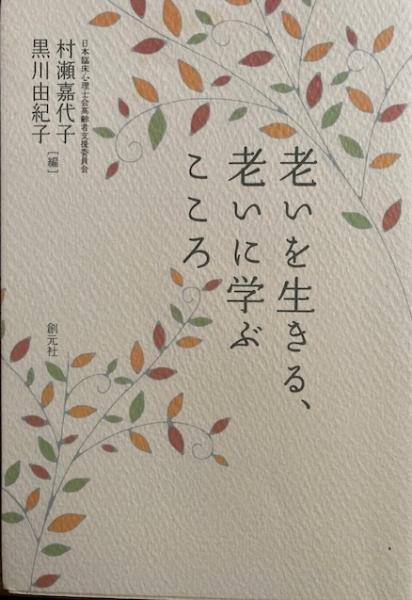 老いを生きる、
老いに学ぶ
こころ
日本臨床心理士会高齢者支援委員会
村瀬嘉代子
黒川由紀子
［編］
創元社